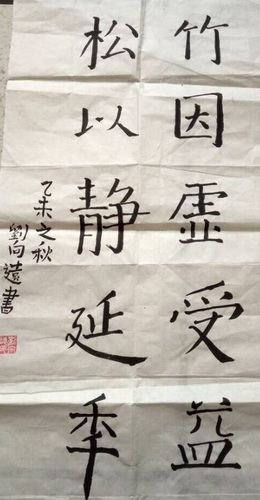 竹因虛受益
松以静延年
乙未之秋
劉向遗書